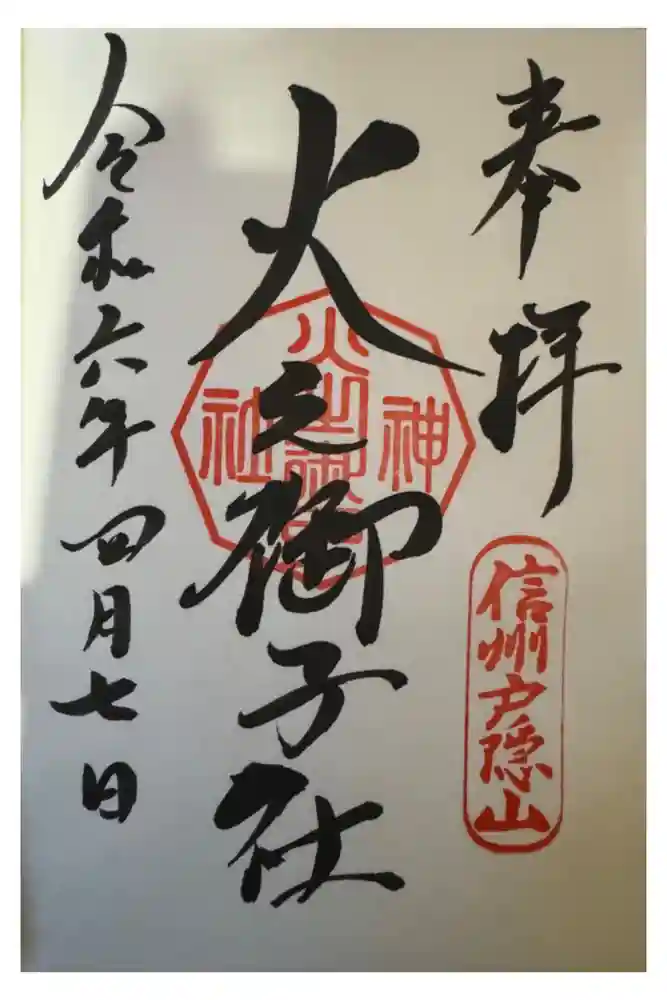 奉拝
信州戸隠山
火之御子社
神社
令和六年四月七日